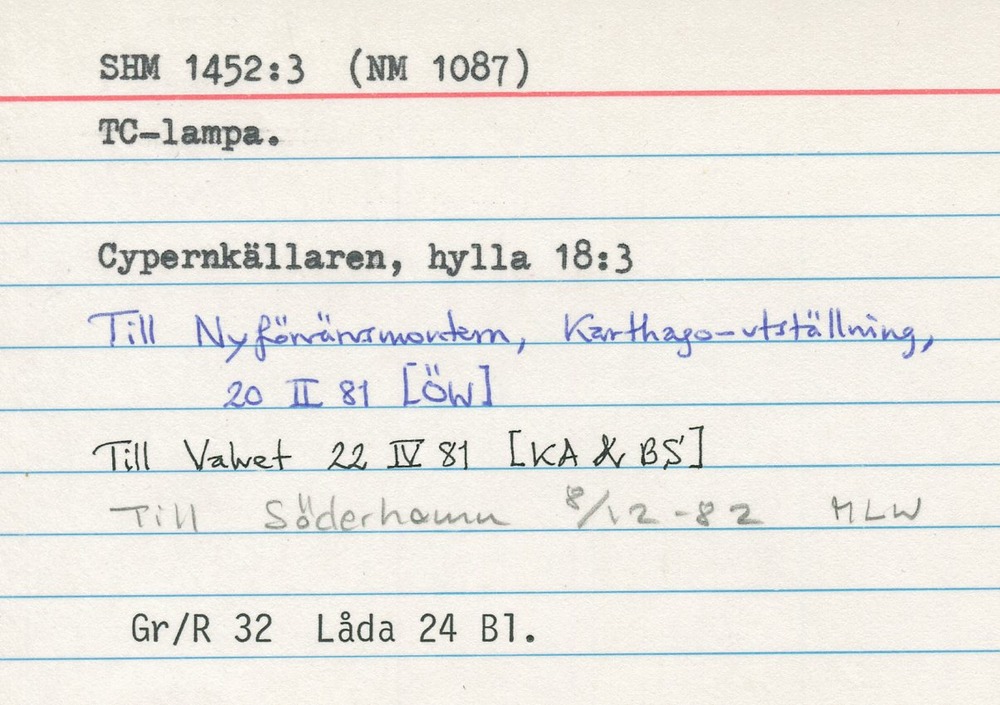 SHM 1452:3 (NM 1087)
TC-lampa.
Cypernkällaren, hylla 18:3
Till Nyförvärvsmontern, Karthago-utställning,
20 II 81 [ÖW]
Till Valvet 22 IV 81 [KA & BS]
Till Söderhamn 8/12-82 MLW
Gr/R 32 Låda 24 Bl.